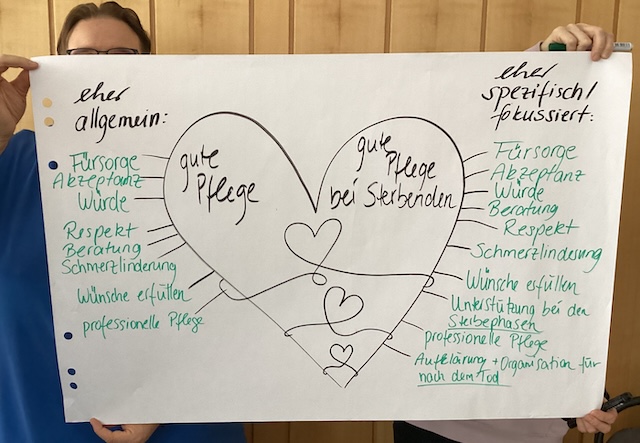 eher
allgemein:
Fürsorge
Akzeptanz
Würde
Respekt
Beratung
Schmerzlinderung
Wünsche erfüllen
professionelle Pflege
gute
Pflege
gute
Pflege
bei Sterbenden
eher
spezifisch/
fokussiert:
Fürsorge
Akzeptanz
Würde
Beratung
Respekt
Schmerzlinderung
Wünsche erfüllen
Unterstützung bei den
Sterbephasen
professionelle Pflege
Aufklärung + Organisation für
nach dem Tod